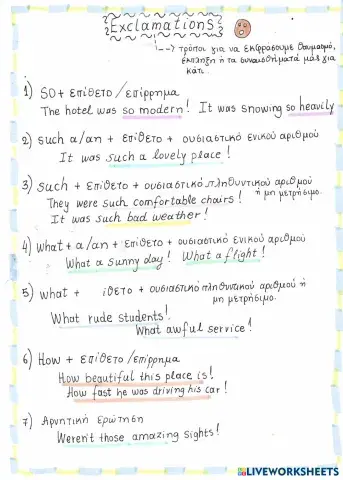 Exclamations
---> τρόποι για να εκφράσουμε θαυμασμό,
έκπληξη ή τα συναισθήματά μας για
κάτι.
1) SO + επίθετο / επίρρημα
The hotel was so modern! It was snowing so heavily
2) such a/an + επίθετο + ουσιαστικό ενικού αριθμού
It was such a lovely place!
3) such + επίθετο + ουσιαστικό πληθυντικού αριθμού
ή μη μετρήσιμο.
They were such comfortable chairs!
It was such bad weather!
4) what + a/an + επίθετο + ουσιαστικό ενικού αριθμού
What a sunny day! What a flight!
5) what + ίθετο + ουσιαστικό πληθυντικού αριθμού ή
μη μετρήσιμο.
What rude students!
What awful service!
6) How + επίθετο / επίρρημα
How beautiful this place is!
How fast he was driving his car!
7) Αρνητική ερώτηση
Weren't those amazing sights!
LIVEWORKSHEETS